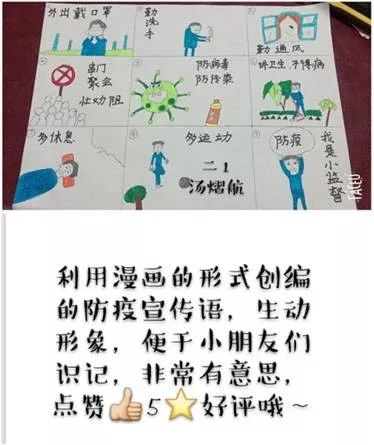 外出戴口罩
勤洗手
勤通风
串门
聚会
让劝阻
防病毒
防传染
讲卫生 不得病
多休息
多运动
二1
汤熠航
防疫
我是小监督
FACEU
利用漫画的形式创编
的防疫宣传语，生动
形象，便于小朋友们
识记，非常有意思，
点赞👍5⭐好评哦～